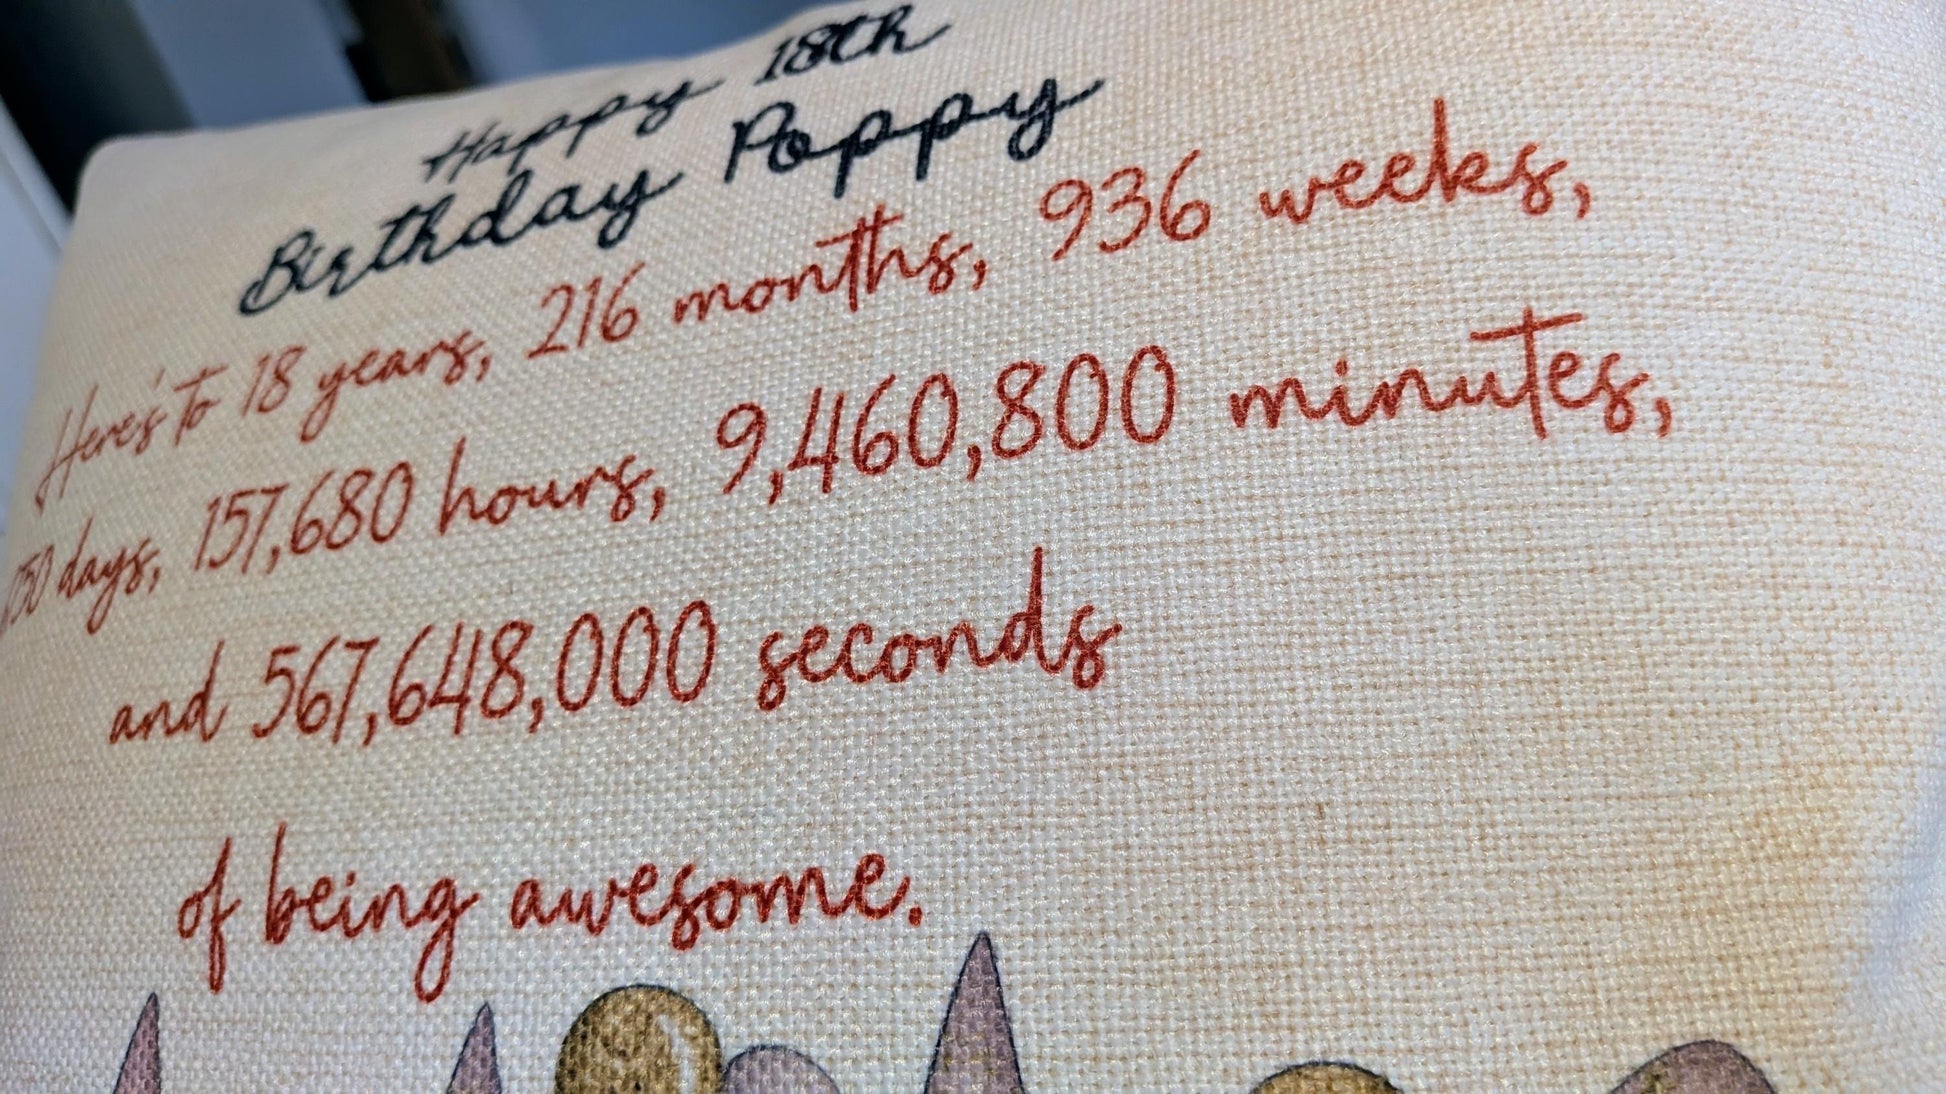 Happy 18th
Birthday Poppy
Here's to 18 years, 216 months, 936 weeks,
days, 157,680 hours, 9,460,800 minutes,
and 567,648,000 seconds
of being awesome.